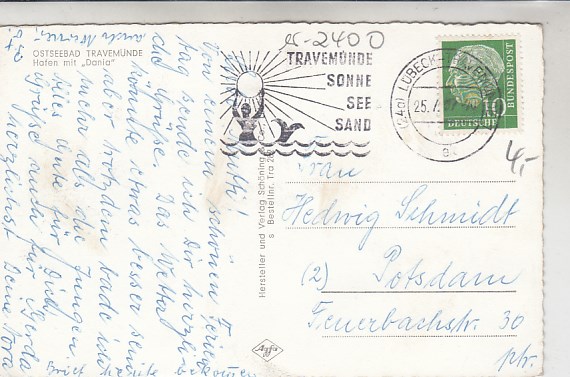 OSTSEEBAD TRAVEMÜNDE
Hafen mit „Dania“
von einem schönen Ferien
tag sende ich Dir herzliche
Grüße. Das Wetter
könnte etwas besser sein
aber trotzdem bade ich
mehr als die Jungen.
alles Gute für Dich
Grüße auch für Gerda
herzlichst Deine Dora
Brief heute bekommen
auch
Hersteller und Verlag Schöning & Co
Bestellnr. Tra
Agfa
TRAVEMÜNDE
SONNE
SEE
SAND
(24a) LÜBECK-TRAVEMÜNDE
25.7.
DEUTSCHE
BUNDESPOST
10
-2400
4,-
Frau
Hedwig Schmidt
(2) Potsdam
Feuerbachstr. 30
ptr.